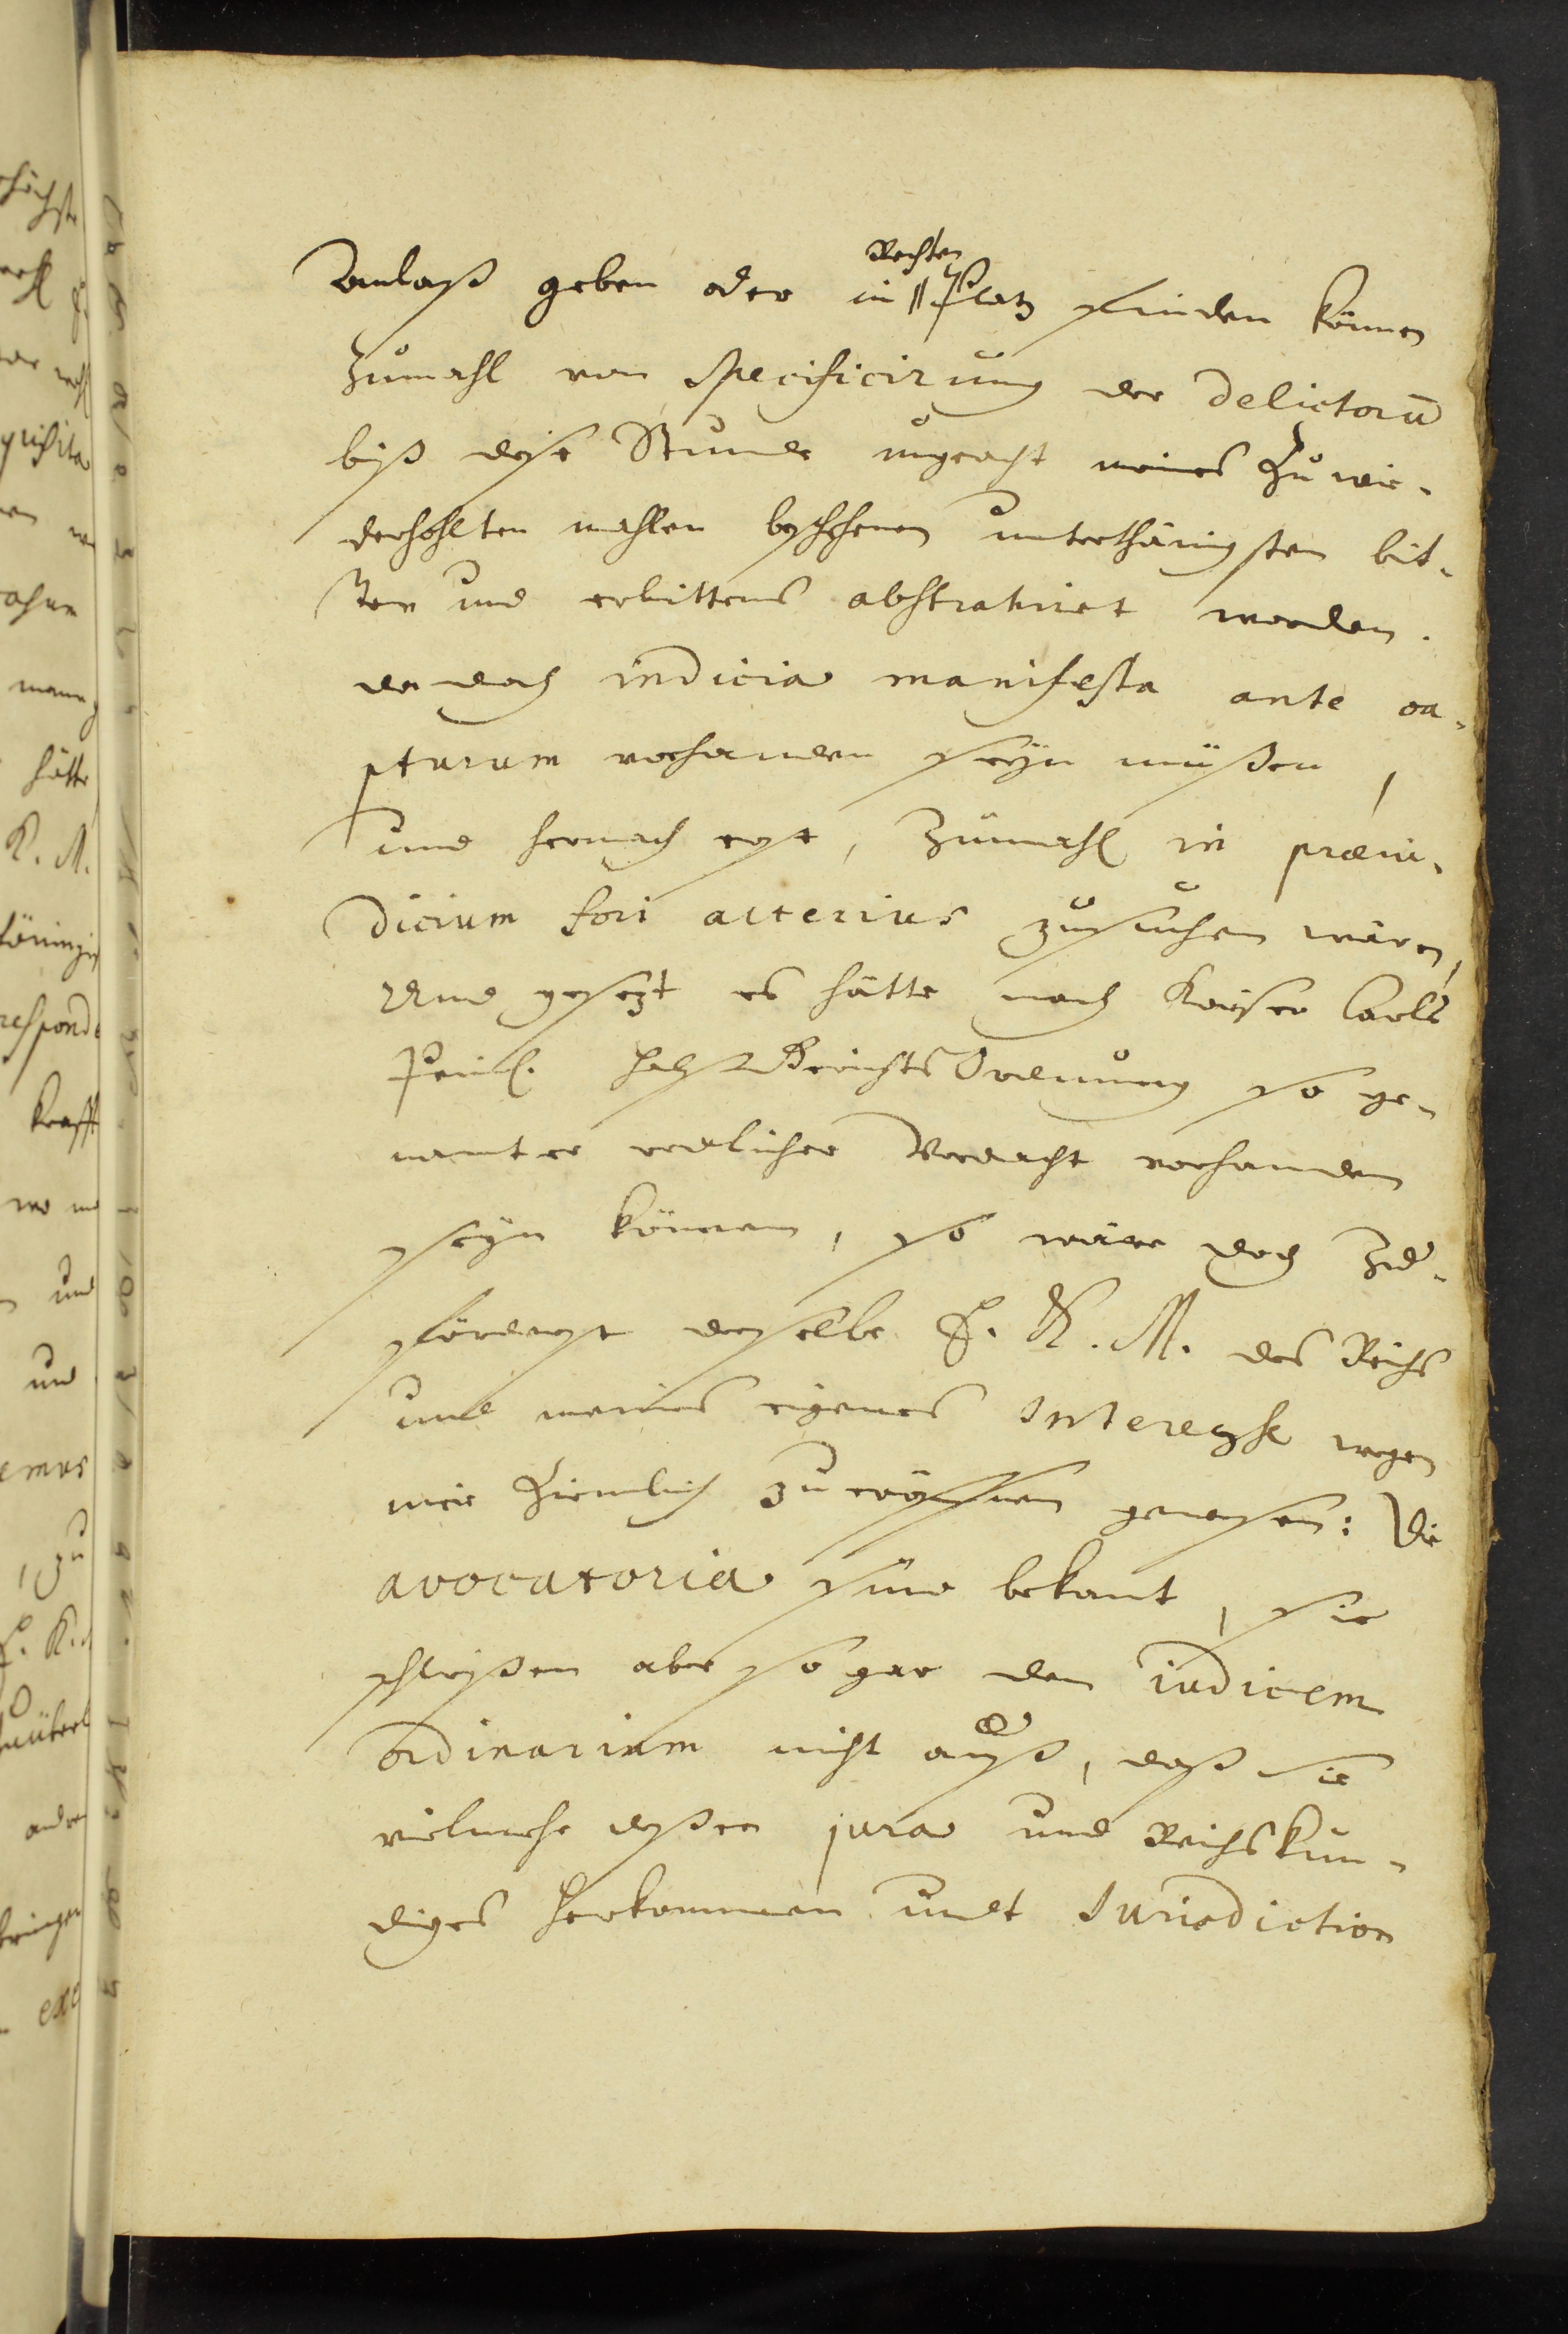 Rechten
anlaß geben oder in Platz finden können
zumahl von specificirung der delictorū
biß diese Stunde ungeacht meines zu wie-
derhohlten mahlen beschehenen unterthänigsten bit-
ten und erbittens abstrahiret worden.
da doch indicia manifesta ante ca-
pturam vorhanden seyn müßen,
und hernach erst, zumahl in præiu-
dicium fori alterius zusuchen wären,
Und gesezt es hätte nach Kaiser Carls
Peinl. Halß GerichtsOrdnung so ge-
nanter redlicher Verdacht vorhanden
seyn können, so wäre doch zu-
förderst derselbe E. K. M. des Reichs
und meines eigenes Interesse wegen
mir ziemlich zu eröffnen gewesen: Die
avocatoria sind bekant, sie
schließen aber so gar den iudicem
ordinarium nicht auß, daß sie
vielmehr deßen jura und Reichskün-
diges Herkommen undt Jurisdiction